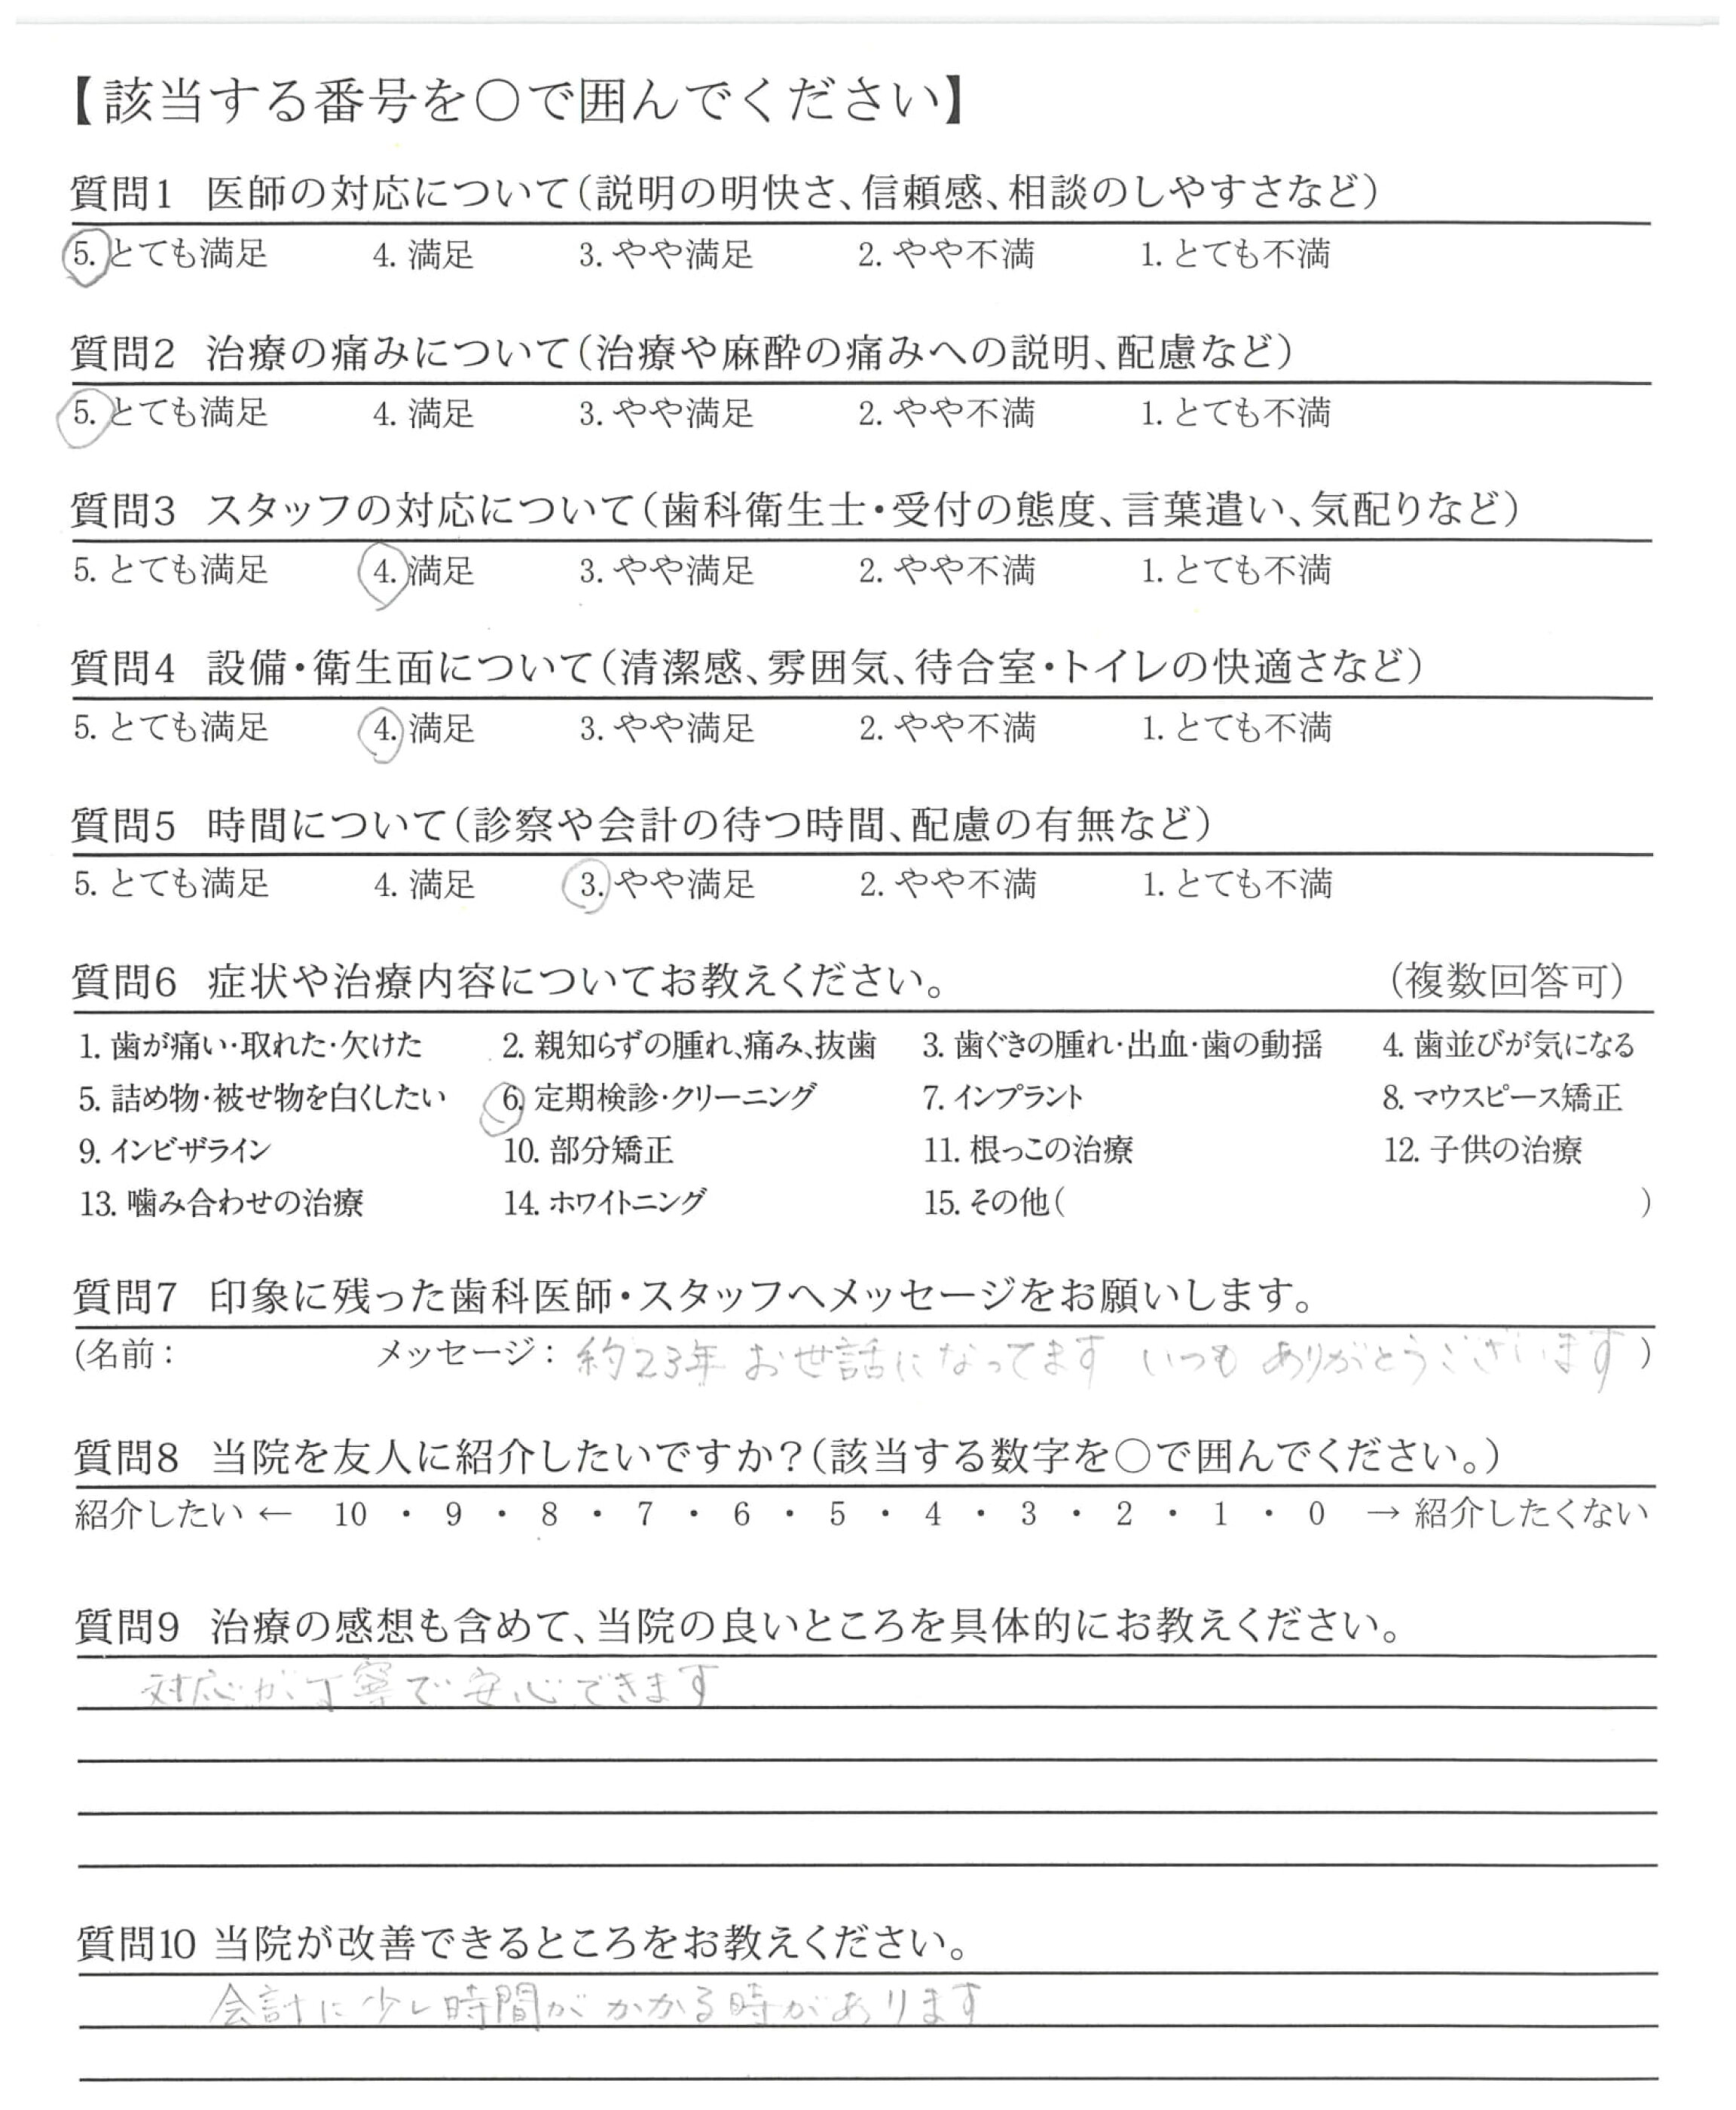 【該当する番号を○で囲んでください】
質問1 医師の対応について(説明の明快さ、信頼感、相談のしやすさなど)
5. とても満足 4. 満足 3. やや満足 2. やや不満 1. とても不満
質問2 治療の痛みについて(治療や麻酔の痛みへの説明、配慮など)
5. とても満足 4. 満足 3. やや満足 2. やや不満 1. とても不満
質問3 スタッフの対応について(歯科衛生士・受付の態度、言葉遣い、気配りなど)
5. とても満足 4. 満足 3. やや満足 2. やや不満 1. とても不満
質問4 設備・衛生面について(清潔感、雰囲気、待合室・トイレの快適さなど)
5. とても満足 4. 満足 3. やや満足 2. やや不満 1. とても不満
質問5 時間について(診察や会計の待つ時間、配慮の有無など)
5. とても満足 4. 満足 3. やや満足 2. やや不満 1. とても不満
質問6 症状や治療内容についてお教えください。 (複数回答可)
1. 歯が痛い・取れた・欠けた 2. 親知らずの腫れ、痛み、抜歯 3. 歯ぐきの腫れ・出血・歯の動揺 4. 歯並びが気になる
5. 詰め物・被せ物を白くしたい 6. 定期検診・クリーニング 7. インプラント 8. マウスピース矯正
9. インビザライン 10. 部分矯正 11. 根っこの治療 12. 子供の治療
13. 噛み合わせの治療 14. ホワイトニング 15. その他( )
質問7 印象に残った歯科医師・スタッフへメッセージをお願いします。
(名前: メッセージ: 約23年 お世話になってます いつも ありがとうございます )
質問8 当院を友人に紹介したいですか?(該当する数字を○で囲んでください。)
紹介したい ← 10 ・ 9 ・ 8 ・ 7 ・ 6 ・ 5 ・ 4 ・ 3 ・ 2 ・ 1 ・ 0 → 紹介したくない
質問9 治療の感想も含めて、当院の良いところを具体的にお教えください。
対応が丁寧で安心できます
質問10 当院が改善できるところをお教えください。
会計に少し時間がかかる時があります